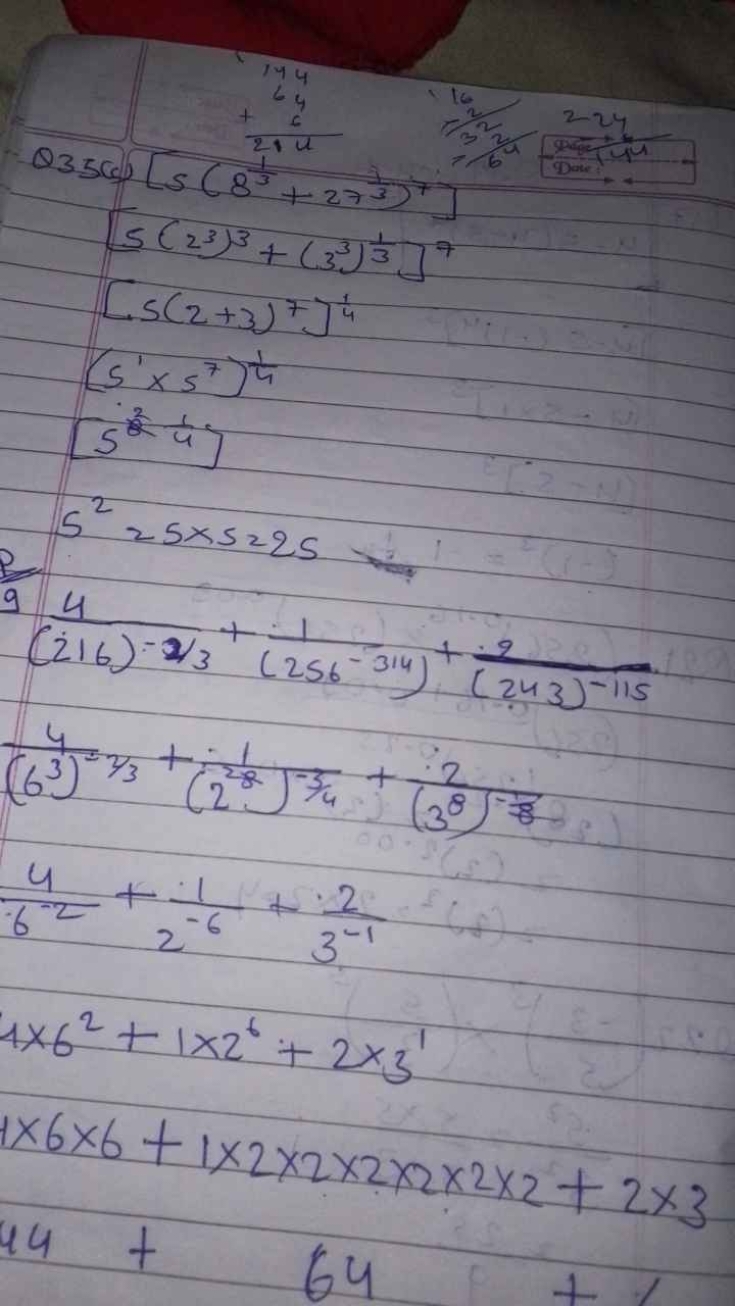 144
64
+ 6
214
16
2-24
144
Page
Date
Q35(c) [5(8^1/3 + 27^1/3)^7]
[5(2³)³ + (3³)^1/3]^7
[5(2+3)^7]^1/4
(5^1 × 5^7)^1/4
[5^8 1/4]
5² = 5×5=25
9 4/(216)^-2/3 + 1/(256^-3/4) + 2/(243)^-1/5
4/(6³)^-2/3 + 1/(2^8)^-3/4 + 2/(3^8)
4/6^-2 + 1/2^-6 + 2/3^-1
4×6² + 1×2^6 + 2×3^1
4×6×6 + 1×2×2×2×2×2×2 + 2×3
44 + 64 +